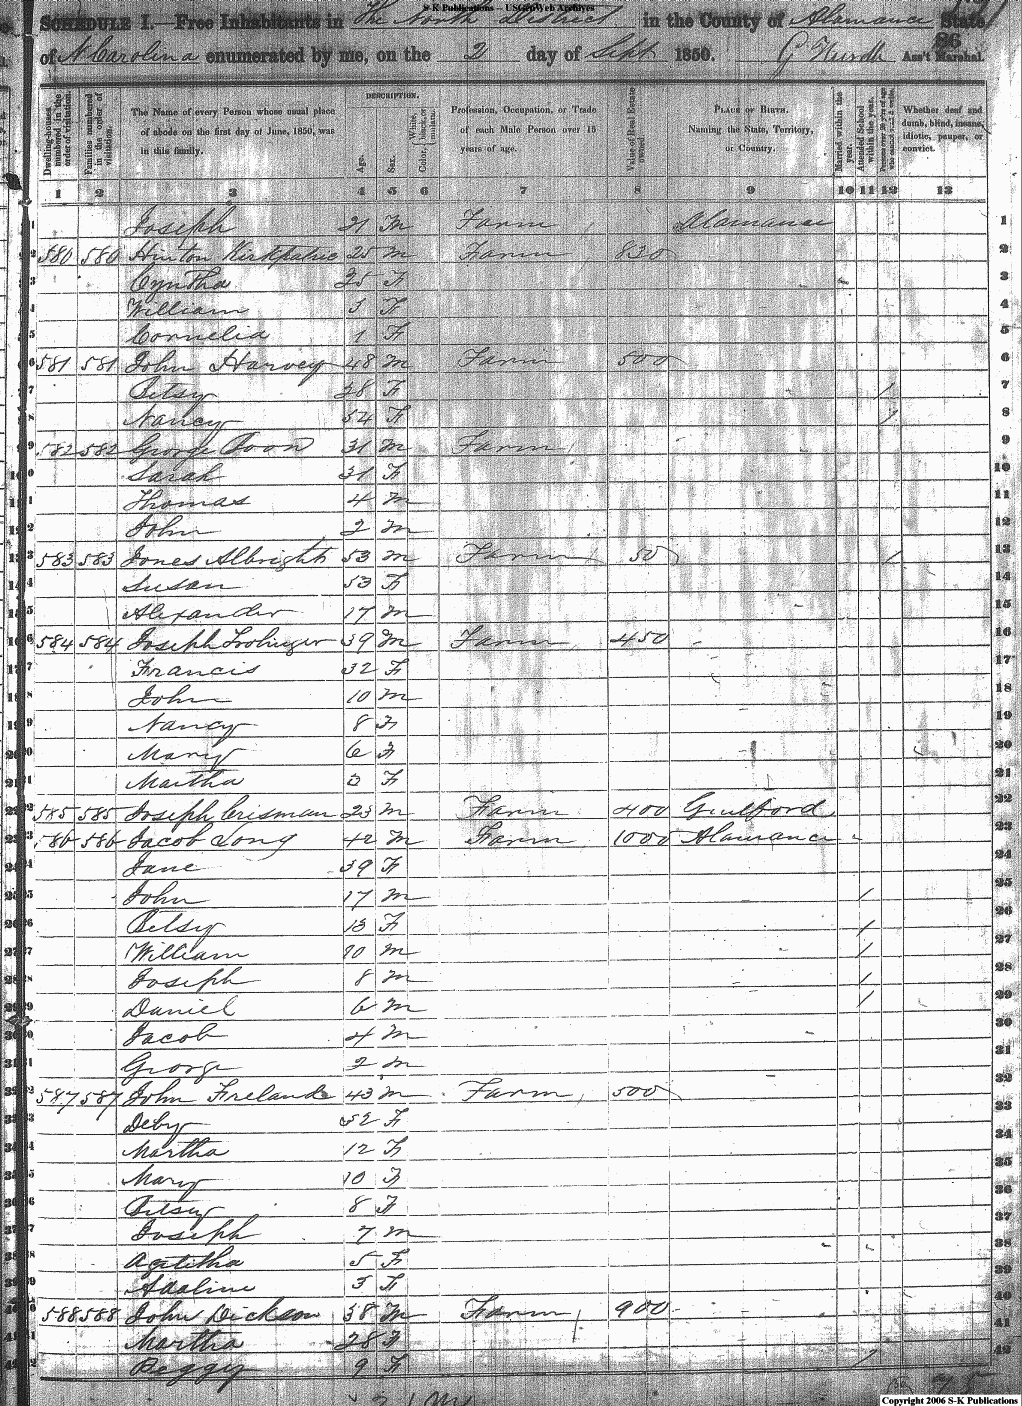 S-K Publications - USGenWeb Archives
SCHEDULE I.—Free Inhabitants in The North District in the County of Alamance State
of N Carolina enumerated by me, on the 2 day of Sept 1850. Ass't Marshal.
86
Dwelling-houses numbered in the order of visitation.
Families numbered in the order of visitation.
The Name of every Person whose usual place of abode on the first day of June, 1850, was in this family.
DESCRIPTION.
Age.
Sex.
Color, White, black, or mulatto.
Profession, Occupation, or Trade of each Male Person over 15 years of age.
Value of Real Estate owned
PLACE OF BIRTH. Naming the State, Territory, or Country.
Married within the year.
Attended School within the year.
Persons over 20 years of age who cannot read & write.
Whether deaf and dumb, blind, insane, idiotic, pauper, or convict.
1 2 3 4 5 6 7 8 9 10 11 12 13
1 Joseph 21 M Farm Alamance 1
2 580 580 Hinton Kirkpatric 25 M Farm 830 2
3 Cyntha 25 F 3
4 William 3 F 4
5 Cornelia 1 F 5
6 581 581 John Harvey 48 M Farm 500 6
7 Betsy 28 F 1 7
8 Nancy 54 F 1 8
9 582 582 George Coon 31 M Farm 9
10 Sarah 31 F 10
11 Thomas 4 M 11
12 John 2 M 12
13 583 583 Jones Albright 53 M Farm 50 1 13
14 Susan 53 F 14
15 Alexander 17 M 15
16 584 584 Joseph Trolinger 39 M Farm 450 16
17 Francis 32 F 17
18 John 10 M 18
19 Nancy 8 F 19
20 Mary 6 F 20
21 Martha 3 F 21
22 585 585 Joseph Crisman 23 M Farm 400 Guilford 22
23 586 586 Jacob Long 42 M Farm 1000 Alamance 23
24 Jane 39 F 24
25 John 17 M 1 25
26 Betsy 13 F 1 26
27 William 10 M 1 27
28 Joseph 8 M 1 28
29 Daniel 6 M 1 29
30 Jacob 4 M 30
31 George 2 M 31
32 587 587 John Fireland 43 M Farm 500 32
33 Deby 52 F 33
34 Martha 12 F 34
35 Mary 10 F 35
36 Betsy 8 F 36
37 Joseph 7 M 37
38 Agatitha 5 F 38
39 Adaline 3 F 39
40 588 588 John Dickson 38 M Farm 900 40
41 Martha 28 F 41
42 Peggy 9 F 1 42
Copyright 2006 S-K Publications